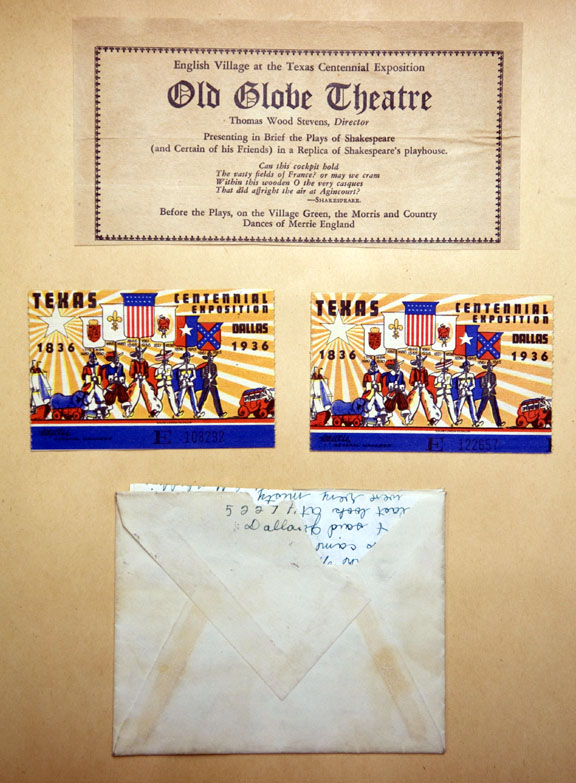 English Village at the Texas Centennial Exposition
Old Globe Theatre
Thomas Wood Stevens, Director
Presenting in Brief the Plays of Shakespeare
(and Certain of his Friends) in a Replica of Shakespeare's playhouse.
Can this cockpit hold
The vasty fields of France? or may we cram
Within this wooden O the very casques
That did affright the air at Agincourt?
—SHAKESPEARE.
Before the Plays, on the Village Green, the Morris and Country
Dances of Merrie England
TEXAS CENTENNIAL
EXPOSITION
DALLAS
1836 1936
E 108292
TEXAS CENTENNIAL
EXPOSITION
DALLAS
1836 1936
GENERAL MANAGER
E 122657
5227
Dallas
came
I said
last look
were very misty